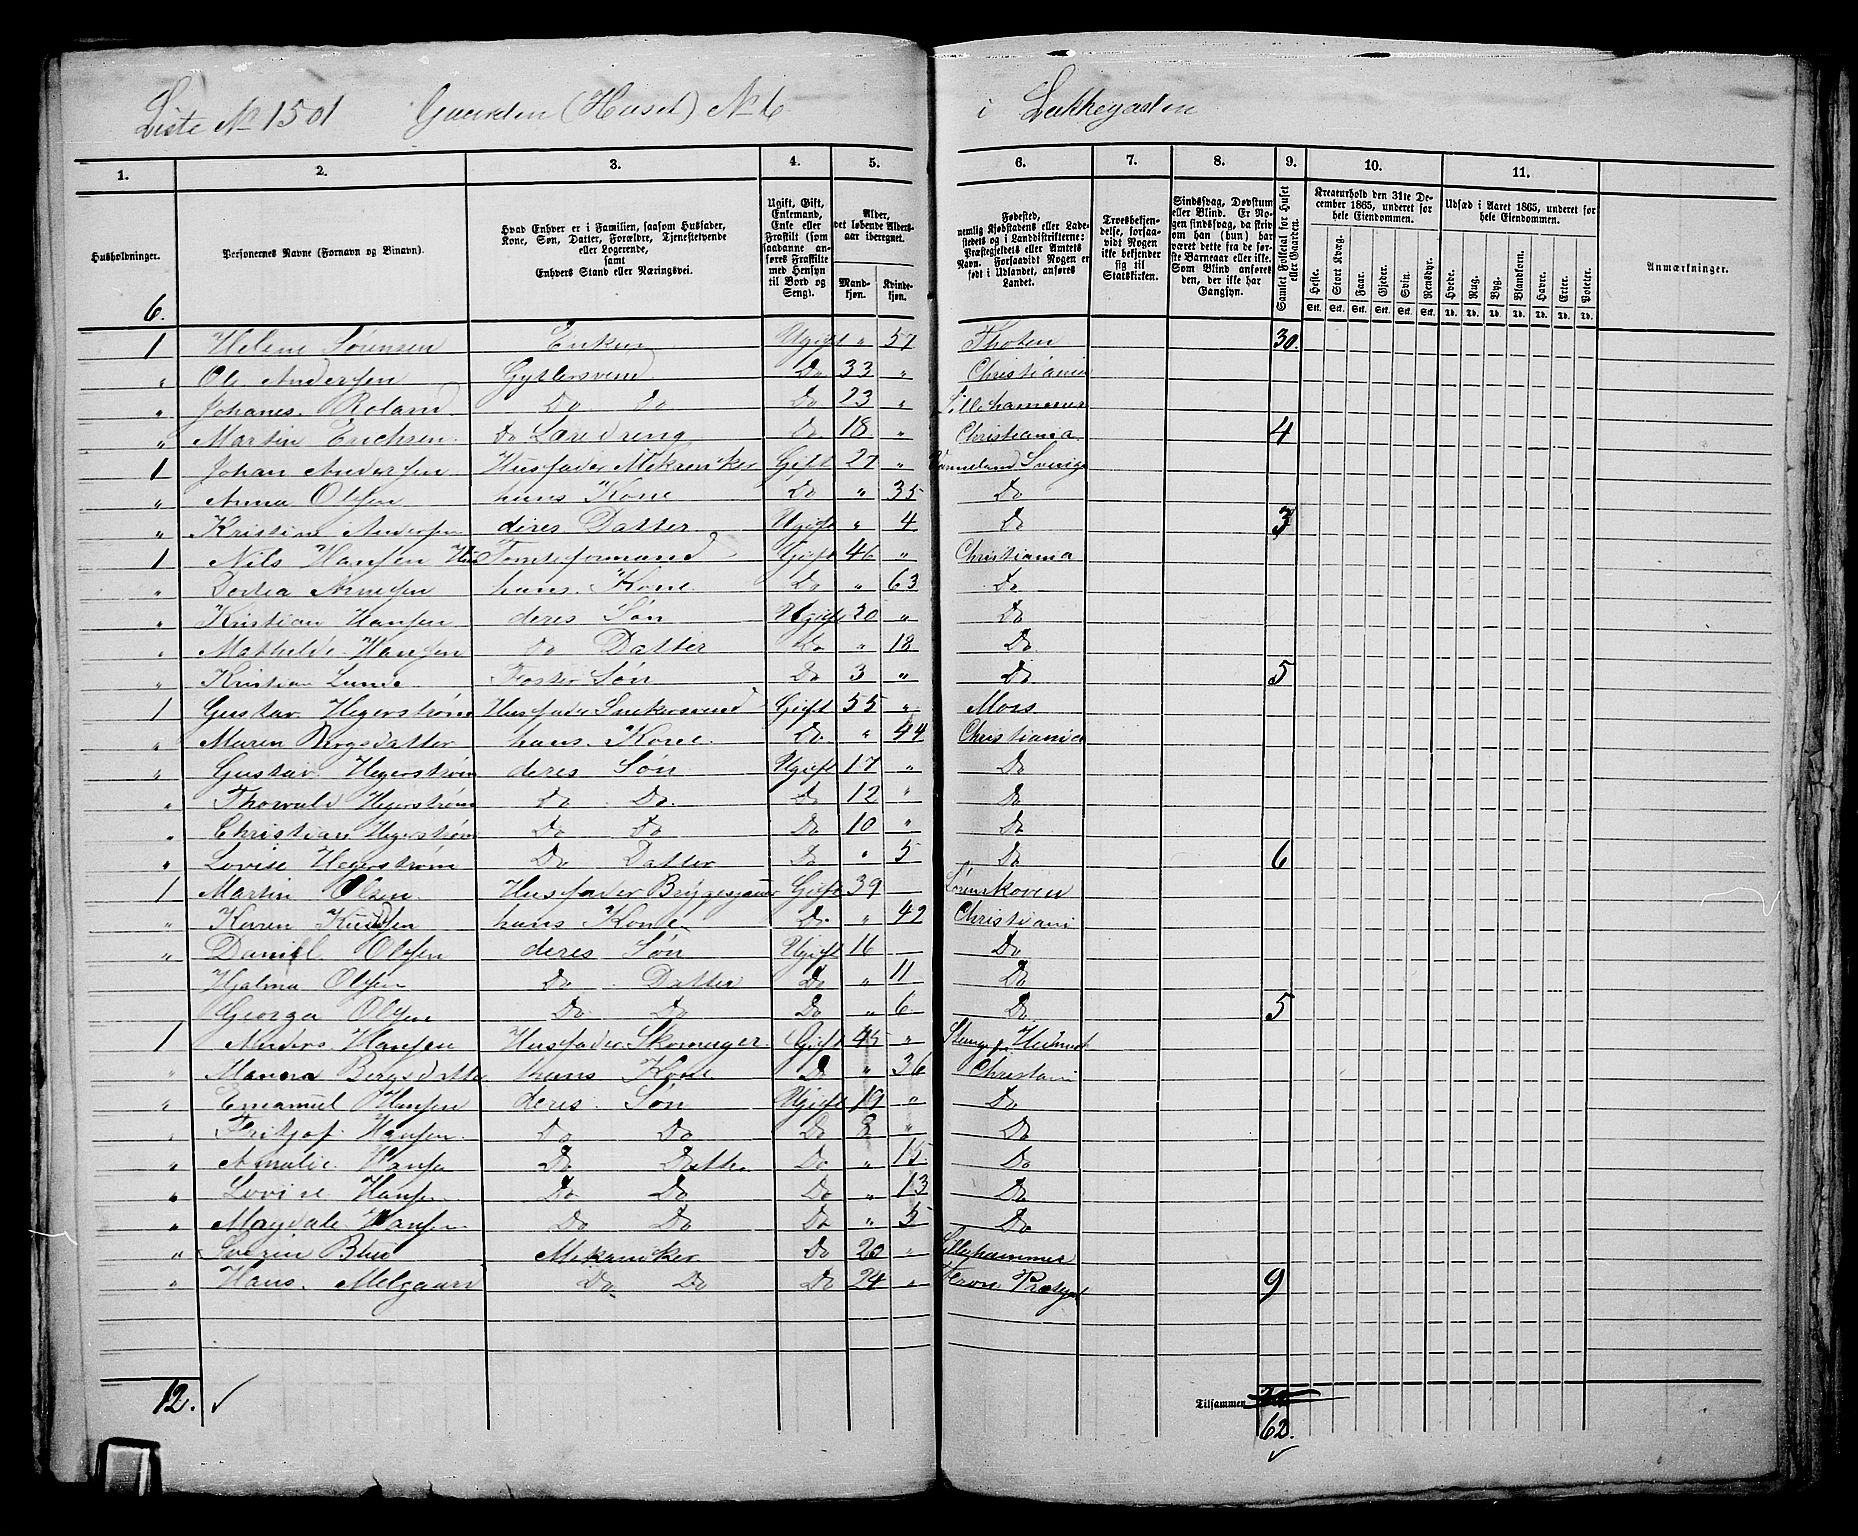 Liste No 1501 Gaarden (Huset) No 6 i Løkkegaden
1. 2. 3. 4. 5. 6. 7. 8. 9. 10. 11.
Husholdninger.
Personernes Navne (Fornavn og Binavn).
Hvad Enhver er i Familien, saasom Husfader, Kone, Søn, Datter, Forældre, Tjenestetyende eller Logerende, samt Enhvers Stand eller Næringsvei.
Ugift, Gift, Enkemand, Enke eller Fraskilt (som saadanne anføres Fraskilte med Hensyn til Bord og Seng).
Alder, det løbende Aldersaar iberegnet.
Mandkjøn. Kvindekjøn.
Fødested, nemlig Kjøbstadens eller Ladestedets og i Landdistrikterne: Præstegjeldets eller Amtets Navn. Forsaavidt Nogen er født i Udlandet, anføres Landet.
Troesbekjendelse, forsaavidt Nogen ikke bekjender sig til Statskirken.
Sindssvag, Døvstum eller Blind. Er Nogen sindssvag, da skriv om han (hun) har været dette fra de første Barneaar eller ikke. Som Blind anføres den, der ikke har Gangsyn.
Samlet Folketal for Huset eller Gaarden.
Kreaturhold den 31te December 1865, underet for hele Eiendommen.
Heste. Stort Kvæg. Faar. Gjeder. Svin. Rensdyr.
Stk. Stk. Stk. Stk. Stk. Stk.
Udsæd i Aaret 1865, underet for hele Eiendommen.
Hvede. Rug. Byg. Blandkorn. Havre. Erter. Poteter.
Td. Td. Td. Td. Td. Td. Td.
Anmærkninger.
6.
1 Helene Sørensen Enken Ugift " 57 Thoten 30.
" Ole Andersen Gytlersvend Do 33 " Christiania
" Johanes. Roland Do do Do 23 " Lillehammer
" Martin Erichsen Do Læredreng Do 18 " Christiania 4
1 Johan Andersen Husfader Mekaniker Gift 27 " Værmeland Sverige
" Anna Olsen hans Kone Do " 35 Do
" Kristine Andersen deres Datter Ugift " 4 Do 3
1 Nils Hansen Tomteformand Gift 46 " Christiania
" Dortea hans Kone Do " 63 Do
" Kristian Hansen deres Søn Ugift 20 " Do
" Mathilde Hansen do Datter Do " 18 Do
" Kristian Lunde Foster Søn Do 3 " Do 5
1 Gustav Hegerstrøm Husfader Snekersvend Gift 55 " Mors
" Maren Bergsdatter hans Kone Do " 44 Christiania
" Gustav Hegerstrøm deres Søn Ugift 17 " Do
" Thorvald Hegerstrøm Do Do Do 12 " Do
" Christian Hegerstrøm Do Do Do 10 " Do
" Lovise Hegerstrøm Do Datter Do " 5 Do 6
1 Martin Olsen Husfader Gift 39 — Sørenskoven
" Karen Knudsen hans Kone Do " 42 Christiani
" Daniel Olsen deres Søn Ugift 16 — Do
Hjalma Olsen Do Datter Do " 11 Do
Georga Olsen Do Do Do " 6 Do 5
1 Anders Hansen Husfader Skomager Gift 45 "
" Bergsdatte hans Kone Do " 36 Christani
" Emanuel Hansen deres Søn Ugift 19 " Do
" Fritjof Hansen Do Do Do 8 " Do
" Amalie Hansen Do Datter Do " 15 Do
" Lovise Hansen Do Do Do " 13 Do
" Magdale Hansen Do Do Do " 5 Do
" Severin Mekaniker Do 20 " Lillehammer
" Hans Melgaard Do Do Do 24 " 9
12. ✓
Tilsammen
62. ✓